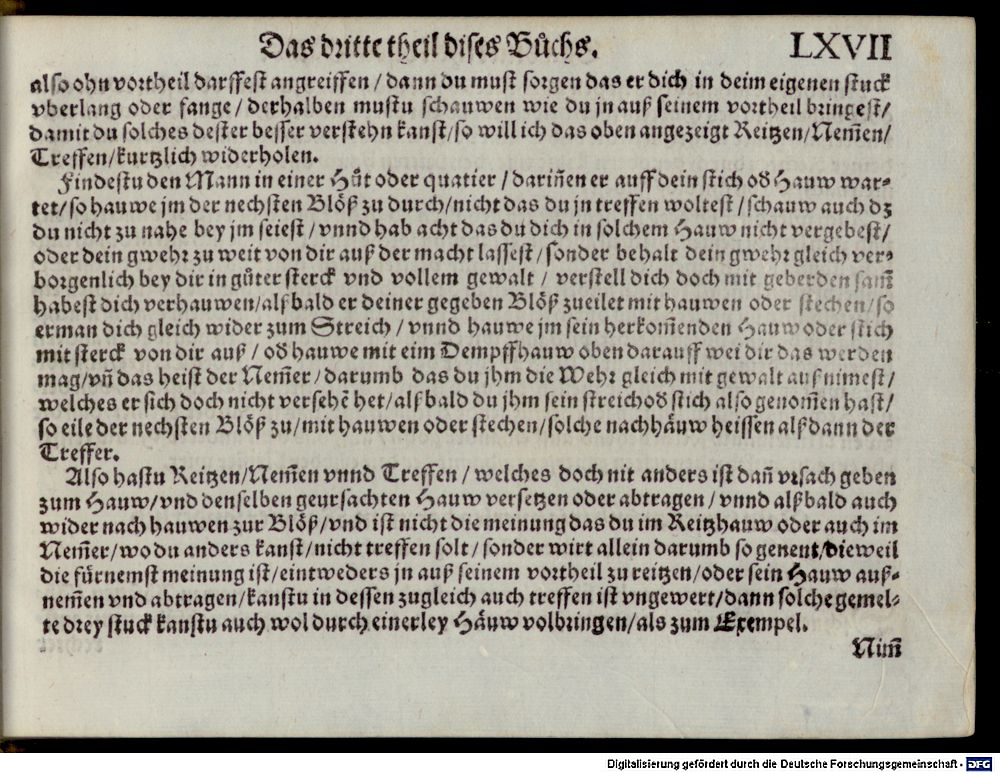 Das dritte theil dises Bůchs. LXVII
also ohn vortheil darffest angreiffen / dann du must sorgen das er dich in deim eigenen stuck
vberlang oder fange / derhalben mustu schauwen wie du jn auß seinem vortheil bringest /
damit du solches dester besser verstehn kanst / so will ich das oben angezeigt Reitzen / Nem̃en /
Treffen / kurtzlich widerholen.
Findestu den Mann in einer Hůt oder quatier / dariñen er auff dein stich oď Hauw war⸗
tet / so hauwe jm der nechsten Blöß zu durch / nicht das du jn treffen woltest / schauw auch dz
du nicht zu nahe bey jm seiest / vnnd hab acht das du dich in solchem Hauw nicht vergebest /
oder dein gwehr zu weit von dir auß der macht lassest / sonder behalt dein gwehr gleich ver⸗
borgenlich bey dir in gůter sterck vnd vollem gewalt / verstell dich doch mit geberden sam̃
habest dich verhauwen / alßbald er deiner gegeben Blöß zueilet mit hauwen oder stechen / so
erman dich gleich wider zum Streich / vnnd hauwe jm sein herkom̃enden Hauw oder stich
mit sterck von dir auß / oď hauwe mit eim Dempffhauw oben darauff wei dir das werden
mag / vñ das heist der Nem̃er / darumb das du jhm die Wehr gleich mit gewalt auß nimest /
welches er sich doch nicht versehẽ het / alßbald du jhm sein streich oď stich also genom̃en hast /
so eile der nechsten Blöß zu / mit hauwen oder stechen / solche nachhäuw heissen alßdann der
Treffer.
Also hastu Reitzen / Nem̃en vnnd Treffen / welches doch nit anders ist dañ vrsach geben
zum Hauw / vnd denselben geursachten Hauw versetzen oder abtragen / vnnd alßbald auch
wider nach hauwen zur Blöß / vnd ist nicht die meinung das du im Reitzhauw oder auch im
Nem̃er / wo du anders kanst / nicht treffen solt / sonder wirt allein darumb so genent / dieweil
die fürnemst meinung ist / eintweders jn auß seinem vortheil zu reitzen / oder sein Hauw auß⸗
nem̃en vnd abtragen / kanstu in dessen zugleich auch treffen ist vngewert / dann solche gemel⸗
te drey stuck kanstu auch wol durch einerley Häuw volbringen / als zum Exempel.
Nim̃
Digitalisierung gefördert durch die Deutsche Forschungsgemeinschaft - DFG